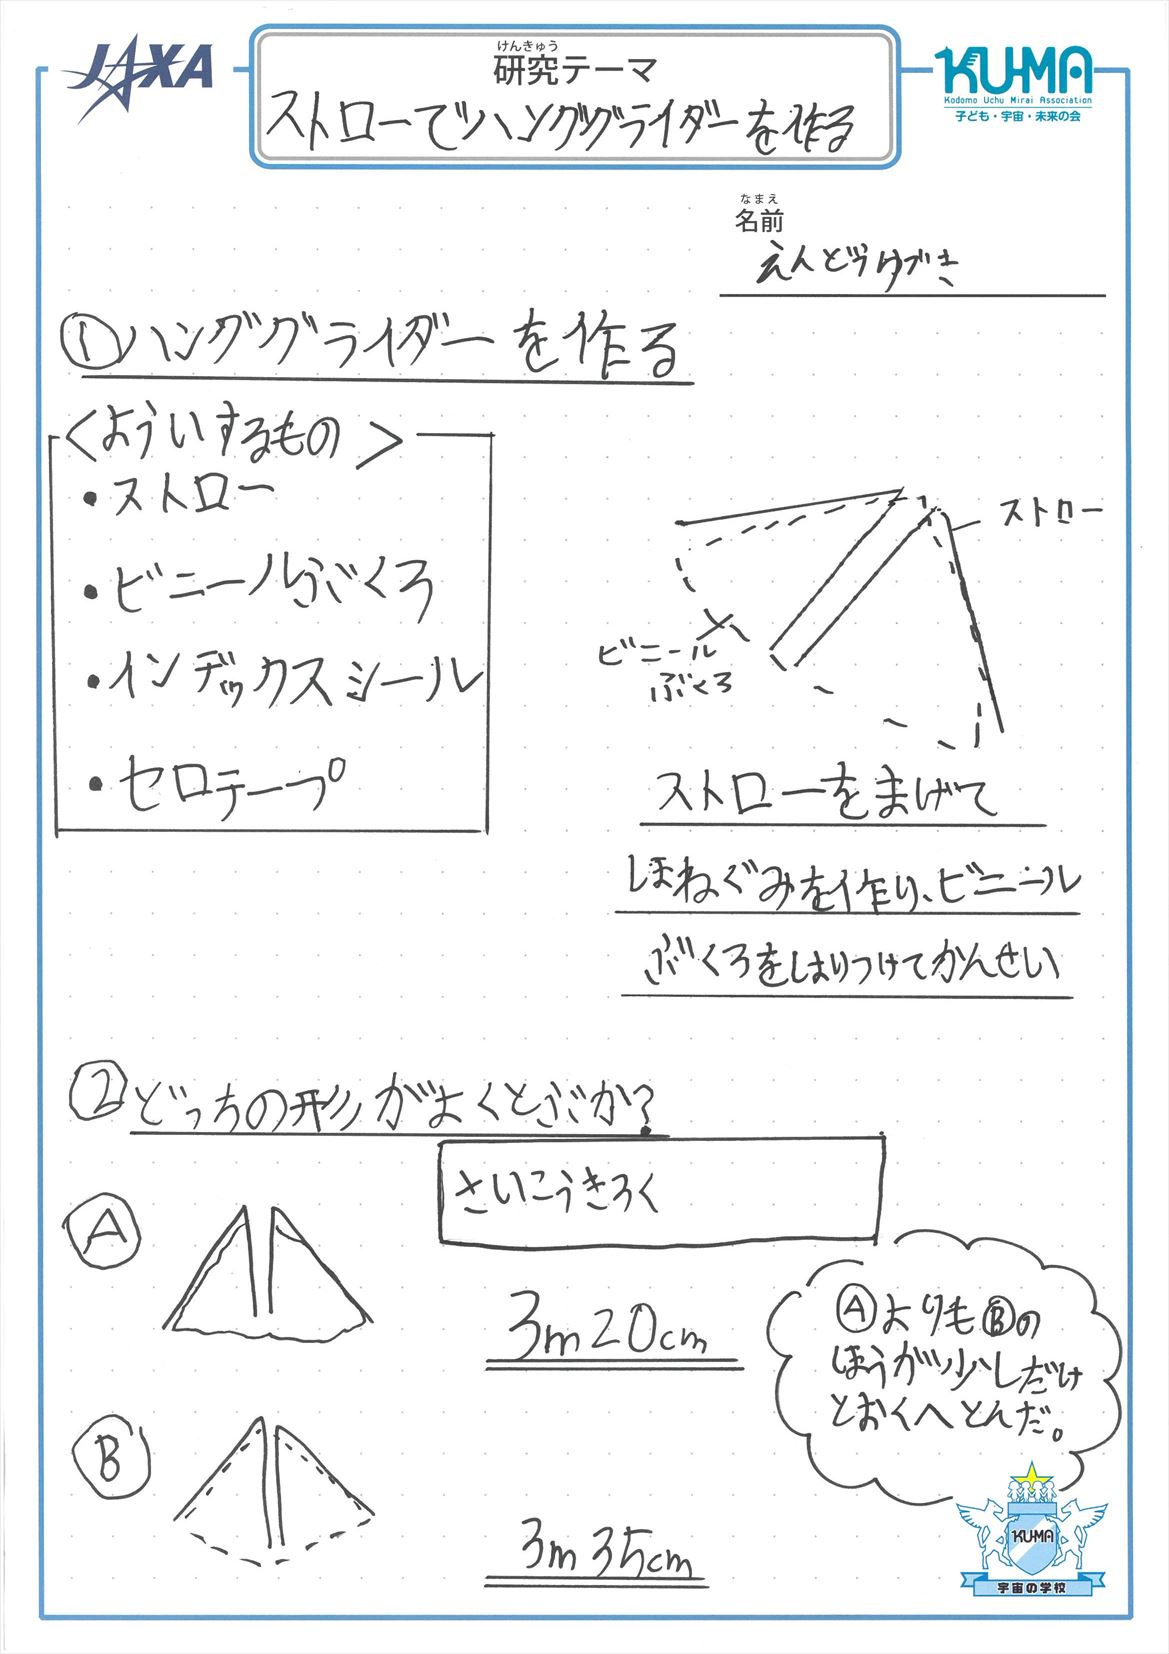 JAXA
けんきゅう
研究テーマ
ストローでハンググライダーを作る
KU-MA
Kodomo Uchu Mirai Association
子ども・宇宙・未来の会
なまえ
名前
えんどうゆづき
①ハンググライダーを作る
<よういするもの>
・ストロー
・ビニールぶくろ
・インデックスシール
・セロテープ
ストロー
ビニール
ぶくろ
ストローをまげて
ほねぐみを作り、ビニール
ぶくろをはりつけてかんせい
②どっちの形がよくとぶか?
さいこうきろく
Ⓐ
3m20cm
Ⓐよりもⓑの
ほうが少しだけ
とおくへとんだ。
Ⓑ
3m35cm
KU-MA
宇宙の学校